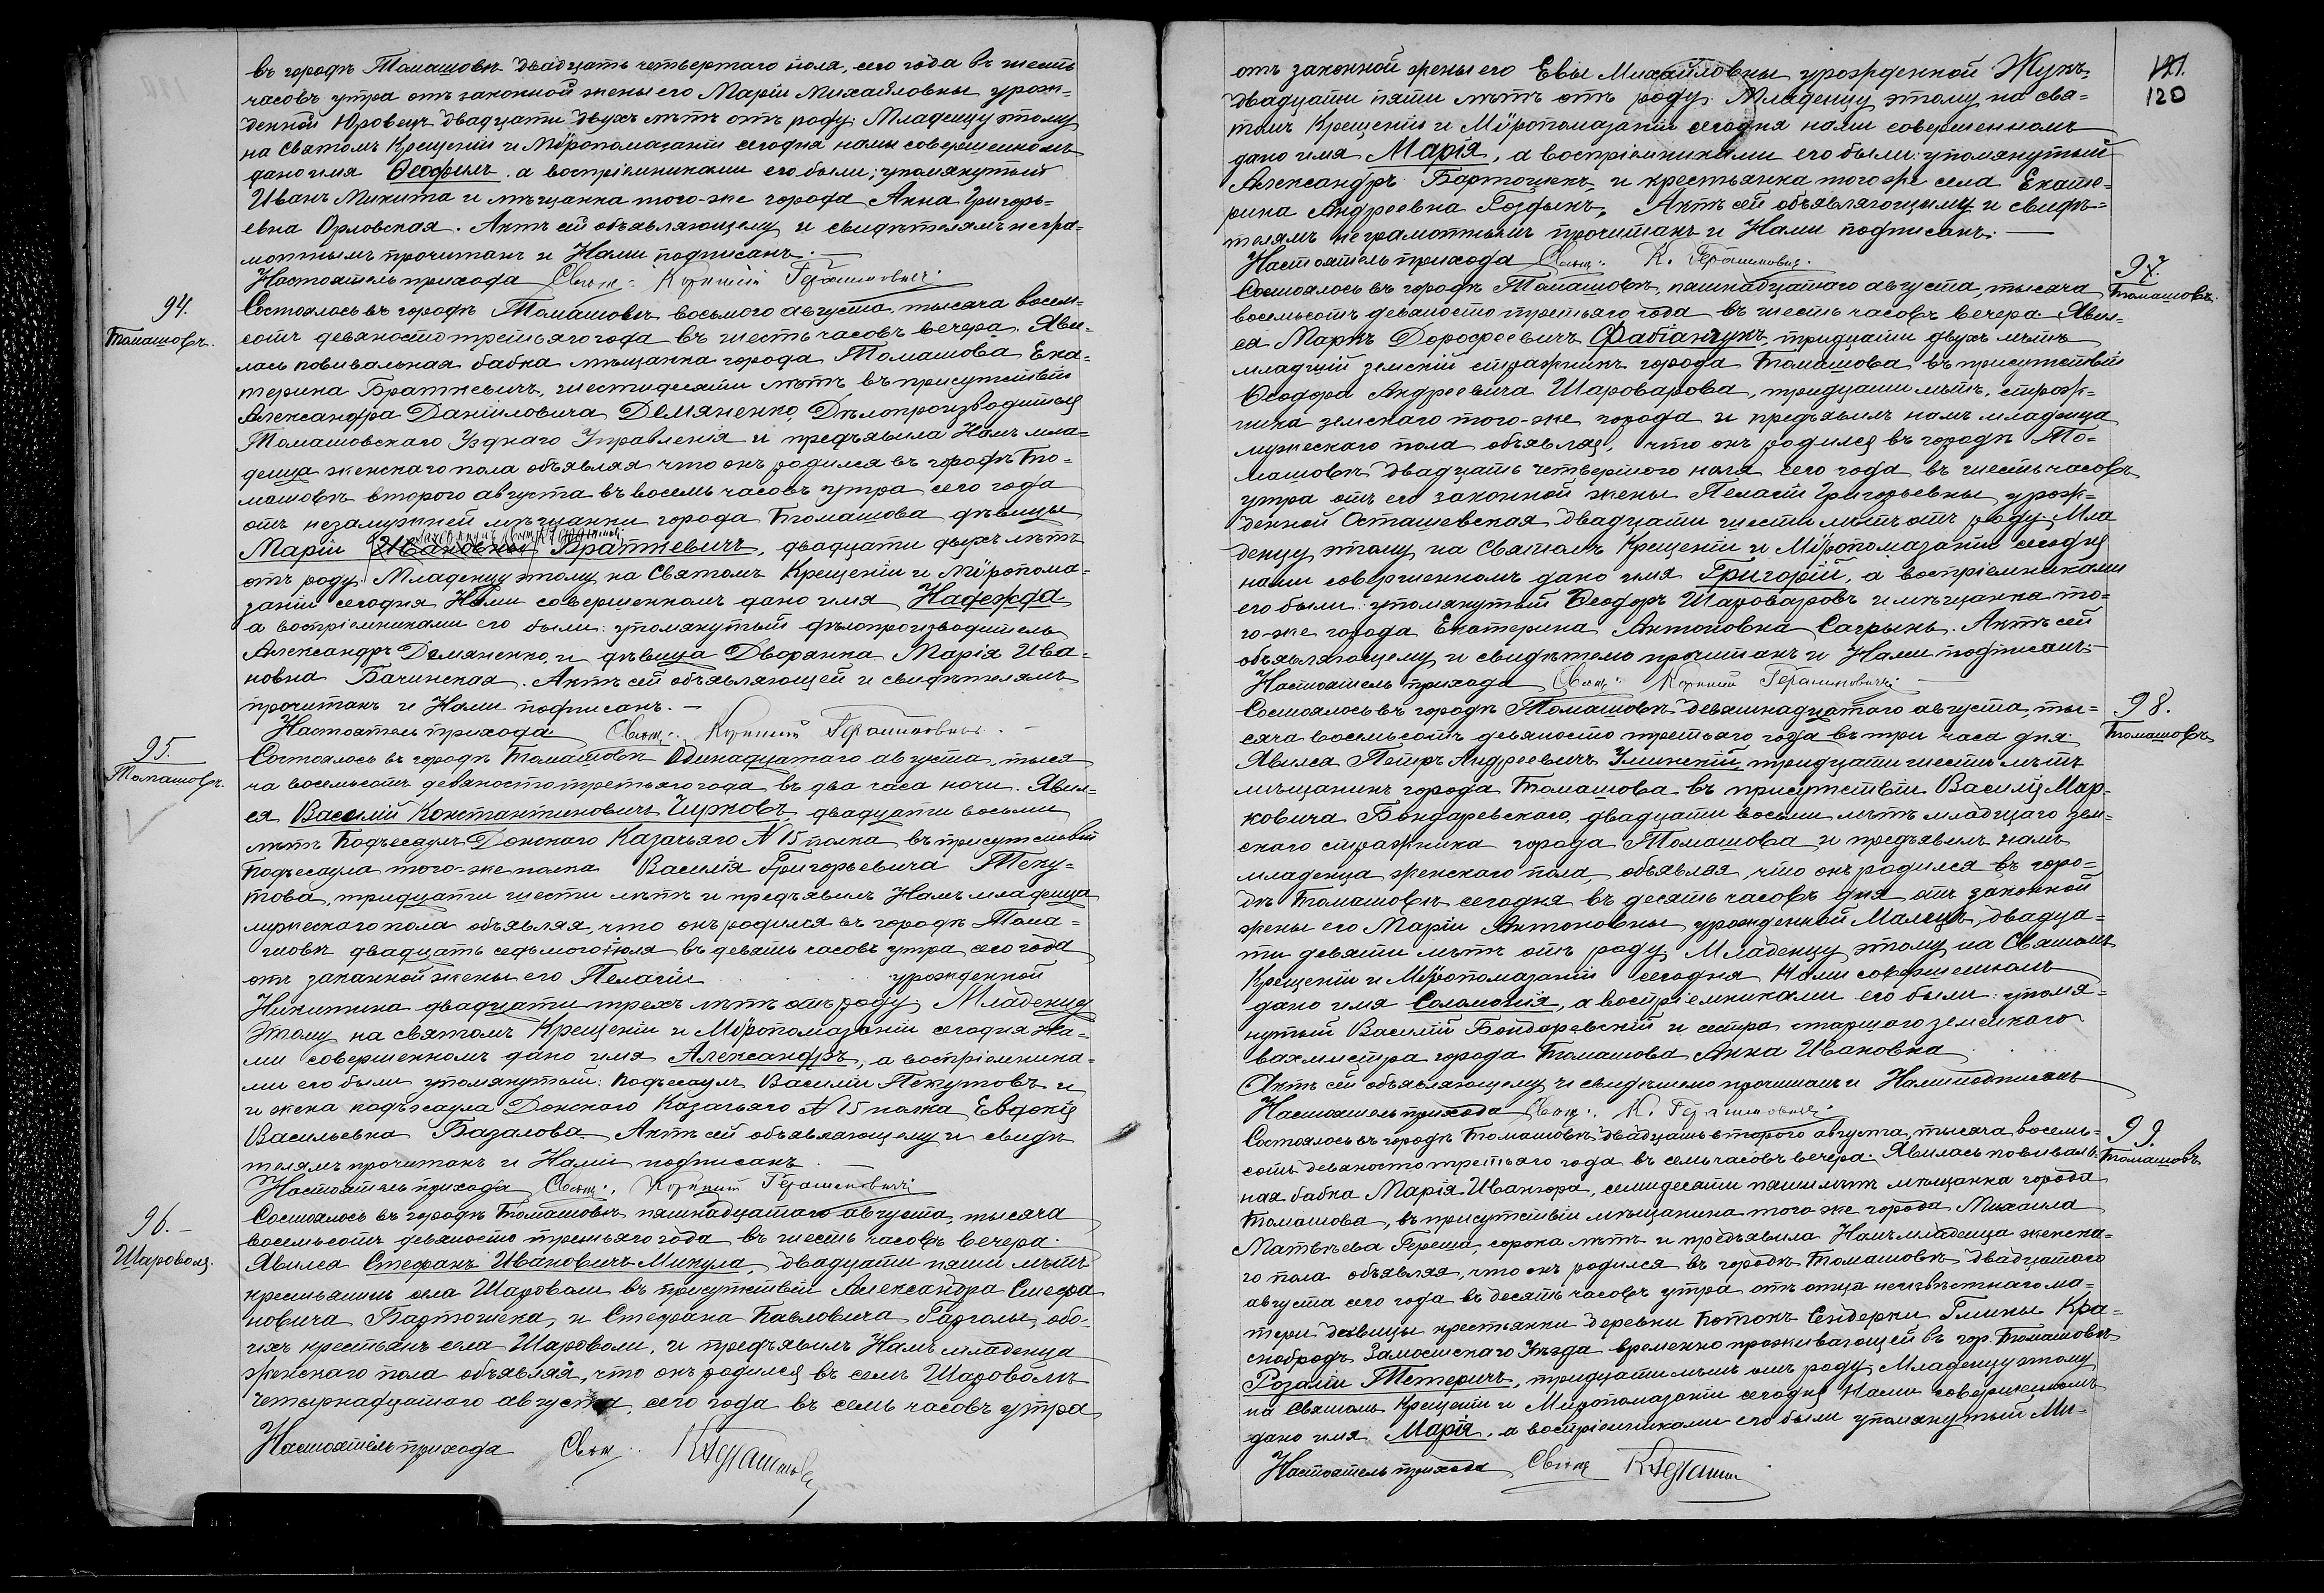 въ городѣ Томашовѣ двадцать четвертаго іюля, сего года въ шесть
часовъ утра отъ законной жены его Маріи Михайловны урож-
денной Юровецъ двадцати двухъ лѣтъ отъ роду. Младенцу этому
на Святомъ Крещеніи и Мѵропомазаніи сегодня нами совершенномъ
дано имя Ѳеофилъ, а воспріемниками его были: упомянутый
Иванъ Микита и мѣщанка того-же города Анна Григорь-
евна Орловская. Актъ сей объявляющему и свидѣтелямъ негра-
мотнымъ прочитанъ и Нами подписанъ. —
Настоятель прихода Свящ: Корнилій Герашиновичъ
94.
Томашовъ.
Состоялось въ городѣ Томашовѣ восьмого августа тысяча восем-
сотъ девяносто третьяго года въ шесть часовъ вечера. Яви-
лась повивальная бабка мѣщанка города Томашова Ека-
терина Браткевичъ, шестидесяти лѣтъ въ присутствіи
Александра Даніиловича Демяненко, Дѣлопроизводителя
Томашовскаго Узднаго Управленія и предъявила Намъ мла-
денца женскаго пола объявляя что онъ родился въ городѣ То-
машовѣ второго августа въ восемь часовъ утра сего года
отъ незамужней мѣщанки города Томашова дѣвицы
Маріи Ивановны Браткевичъ, двадцати двухъ лѣтъ
отъ роду. Младенцу этому на Святомъ Крещеніи и Мѵропома-
заніи сегодня Нами совершенномъ дано имя Надежда
а воспріемниками его были: упомянутый дѣлопроизводитель
Александръ Демяненко, и дѣвица Дворянка Марія Ива-
новна Бачинская. Актъ сей объявляющей и свидѣтелямъ
прочитанъ и Нами подписанъ. —
Настоятель прихода Свящ: Корнилій Герашиновичъ
95.
Томашовъ.
Состоялось въ городѣ Томашовѣ Одинадцатаго августа тыся
ча восемьсотъ девяносто третьяго года въ два часа ночи. Явил-
ся Василій Константиновичъ Чирковъ двадцати восьми
лѣтъ Подъесаулъ Донскаго Казачьяго N 15 полка въ присутствіи
Подъесаула того-же полка Василія Григорьевича Теку-
това, тридцати шести лѣтъ и предъявилъ Намъ младенца
мужескаго пола объявляя, что онъ родился въ городѣ Тома-
шовѣ двадцать седьмого іюля въ девять часовъ утра сего года
отъ законной жены его Пелагіи урожденной
Никитина двадцати трехъ лѣтъ отъ роду. Младенцу
Этому на святомъ Крещеніи и Мѵропомазаніи сегодня На-
ми совершенномъ дано имя Александръ, а воспріемника-
ми его были упомянутый: Подъесаулъ Василій Текутовъ и
и жена подъесаула Донскаго Казачьяго N 15 полка Евдокія
Васильевна Базалова. Актъ сей объявляющему и свидѣ
телямъ прочитанъ и Нами подписанъ.
Настоятель прихода Свящ: Корнилій Герашиновичъ
96. —
Шароволя.
Состоялось въ городѣ Томашовѣ пятнадцатаго августа, тысяча
восемьсотъ девяносто третьяго года въ шесть часовъ вечера.
Явился Стефанъ Ивановичъ Микула, двадцати пяти лѣтъ
крестьянинъ села Шароволи въ присутствіи Александра Стефа
новича Бартошека, и Стефана Павловича Гарголы, обо-
ихъ крестьянъ села Шароволи, и предъявилъ Намъ младенца
женскаго пола объявляя, что онъ родился въ селѣ Шароволѣ
четырнадцатаго августа, сего года въ семь часовъ утра
Настоятель прихода Свящ: К Герашинов
121.
120
отъ законной жены его Евы Михайловны урожденной Жукъ
двадцати пяти лѣтъ отъ роду. Младенцу этому на Свя-
томъ Крещеніи и Мѵропомазаніи сегодня нами совершенномъ
дано имя Марія, а воспріемниками его были: упомянутый
Александръ Бартошекъ, и крестьянка того же села Екате-
рина Андреевна Гоздыкъ. Актъ сей объявляющему и свидѣ-
телямъ неграмотнымъ прочитанъ и Нами подписанъ. —
Настоятель прихода Свящ: К. Герашиновичъ.
97.
Томашовъ.
Состоялось въ городѣ Томашовѣ, пятнадцатаго августа, тысяча
восемьсотъ девяносто третьяго года въ шесть часовъ вечера. Явил-
ся Маркъ Дорофеевичъ Фабіанчукъ, тридцати двухъ лѣтъ
младшій земскій стражникъ города Томашова въ присутствіи
Ѳеодора Андреевича Шароварова, тридцати лѣтъ, страж-
ника земскаго того-же города и предъявилъ намъ младенца
мужескаго пола объявляя, что онъ родился въ городѣ То-
машовѣ двадцать четвертого іюля сего года въ шесть часовъ
утра отъ его законной жены Пелагіи Григорьевны урож-
денной Осташевская двадцати шести лѣтъ отъ роду. Мла
денцу этому на Святомъ Крещеніи и Мѵропомазаніи сегодня
нами совершенномъ дано имя Григорій, а воспріемниками
его были: упомянутый Ѳеодоръ Шароваровъ и мѣщанка то-
го-же города Екатерина Антоновна Сагрынь. Актъ сей
объявляющему и свидѣтелю прочитанъ и Нами подписанъ. —
Настоятель прихода Свящ: Корнилій Герашиновичъ
98.
Томашовъ
Состоялось въ городѣ Томашовѣ девятнадцатаго августа, ты-
сяча восемьсотъ девяносто третьяго года въ три часа дня.
Явился Петръ Андреевичъ Улинскій тридцати шести лѣтъ
мѣщанинъ города Томашова въ присутствіи Василія Мар-
ковича Бондаревскаго, двадцати восьми лѣтъ младшаго зем-
скаго стражника города Томашова и предъявилъ намъ
младенца женскаго пола, объявляя, что онъ родился въ горо-
дѣ Томашовѣ сегодня въ десять часовъ дня отъ законной
жены его Маріи Антоновны урожденной Малецъ, двадца-
ти девяти лѣтъ отъ роду. Младенцу этому на Святомъ
Крещеніи и Мѵропомазаніи сегодня Нами совершенномъ
дано имя Соломонія, а воспріемниками его были: упомя-
нутый Василій Бондаревскій и сестра старшаго земскаго
вахмистра города Томашова Анна Ивановна
Актъ сей объявляющему и свидѣтелю прочитанъ и Нами подписанъ
Настоятель прихода Свящ: К. Герашиновичъ
99.
Томашовъ
Состоялось въ городѣ Томашовѣ двадцать второго августа, тысяча восемь-
сотъ девяносто третьяго года въ семь часовъ вечера. Явилась повиваль-
ная бабка Марія Иванчора, семидесяти пяти лѣтъ мѣщанка города
Томашова, въ присутствіи мѣщанина того же города Михаила
Матвѣева Гереша, сорока лѣтъ и предъявила Намъ младенца женска-
го пола объявляя, что онъ родился въ городѣ Томашовѣ двадцатаго
августа сего года въ десять часовъ утра отъ отца неизвѣстнаго ма-
тери дѣвицы крестьянки деревни Потокъ Сендерки Гмины Кра-
снобродъ Замостскаго Уѣзда временно проживающей въ гор. Томашовѣ
Розаліи Тетеричъ, тридцати лѣтъ отъ роду. Младенцу этому
на Святомъ Крещеніи и Мѵропомазаніи сегодня Нами совершенномъ
дано имя Марія, а воспріемниками его были упомянутый Ми-
Настоятель прихода Свящ К Гераши